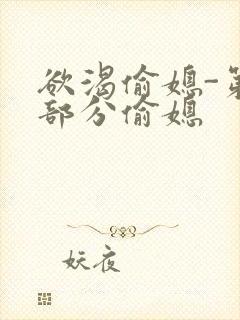 欲渴偷媳-第
部分偷媳
妖夜